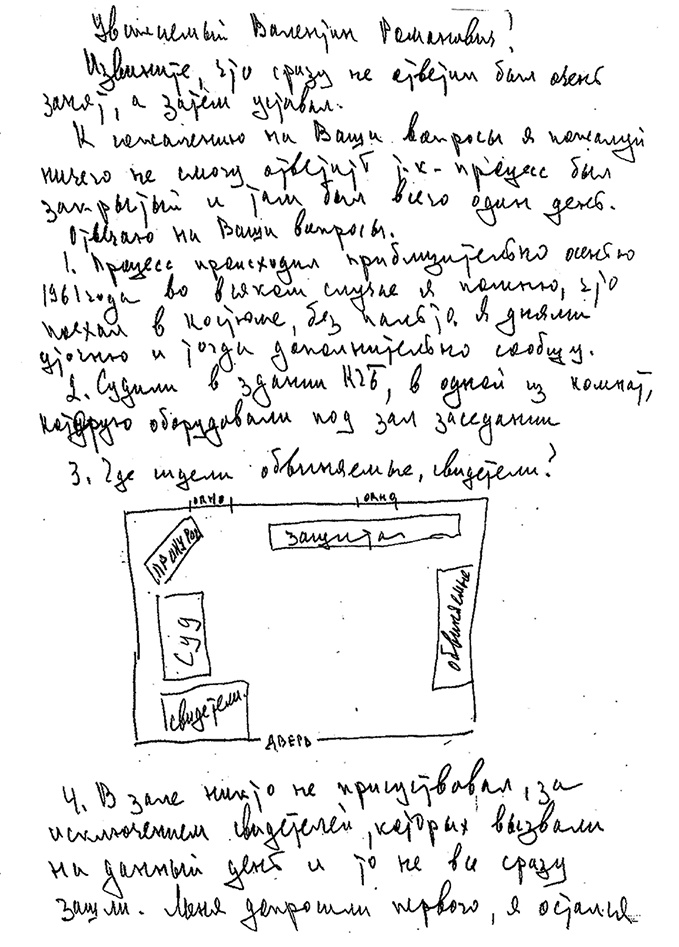 Уважаемый Валентин Романович!
Извините, что сразу не ответил был очень
занят, а затем уставал.
К сожалению на Ваши вопросы я пожалуй
ничего не смогу ответить т.к. процесс был
закрытый и там был всего один день.
Отвечаю на Ваши вопросы.
1. Процесс происходил приблизительно осенью
1961 года во всяком случае я помню, что
поехал в костюме, без пальто. Я днями
уточню и тогда дополнительно сообщу.
2. Судили в здании КГБ, в одной из комнат,
которую оборудовали под зал заседании
3. Где сидели обвиняемые, свидетели?
окно окно
прокурор
защита
суд
обвиняемые
свидетели.
дверь
4. В зале никто не присуствовал, за
исключением свидетелей, которых вызвали
на данный день и то не все сразу
зашли. Меня допросили первого, я остался